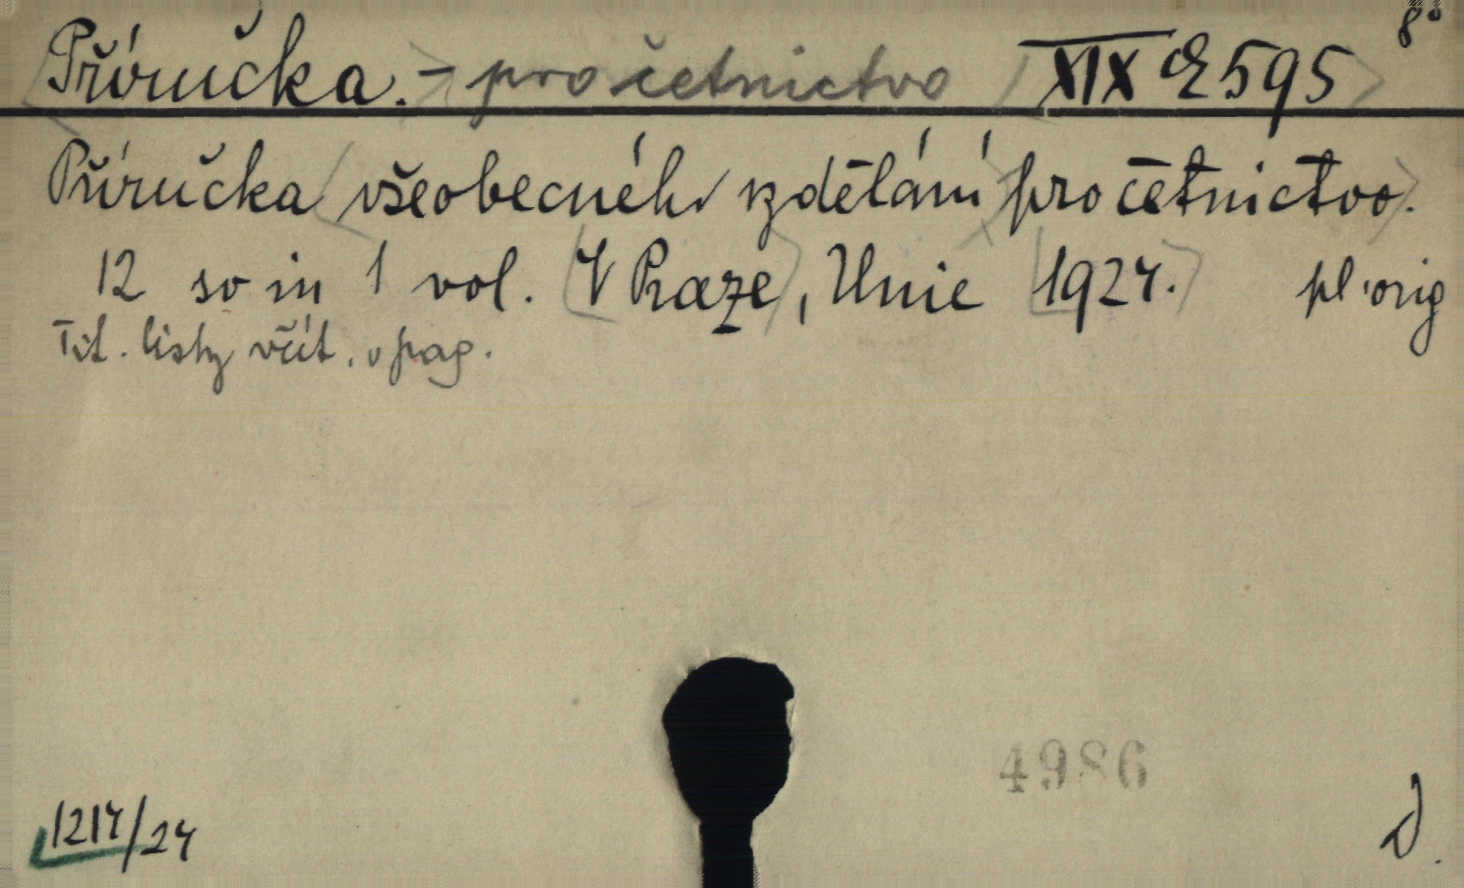 8°
Příručka. - pro četnictvo XIX E 595
Příručka všeobecného vzdělání pro četnictvo.
12 so in 1 vol. V Praze, Unie 1924. pl. orig
Tit. listy včít. v pag.
4986
1214/24